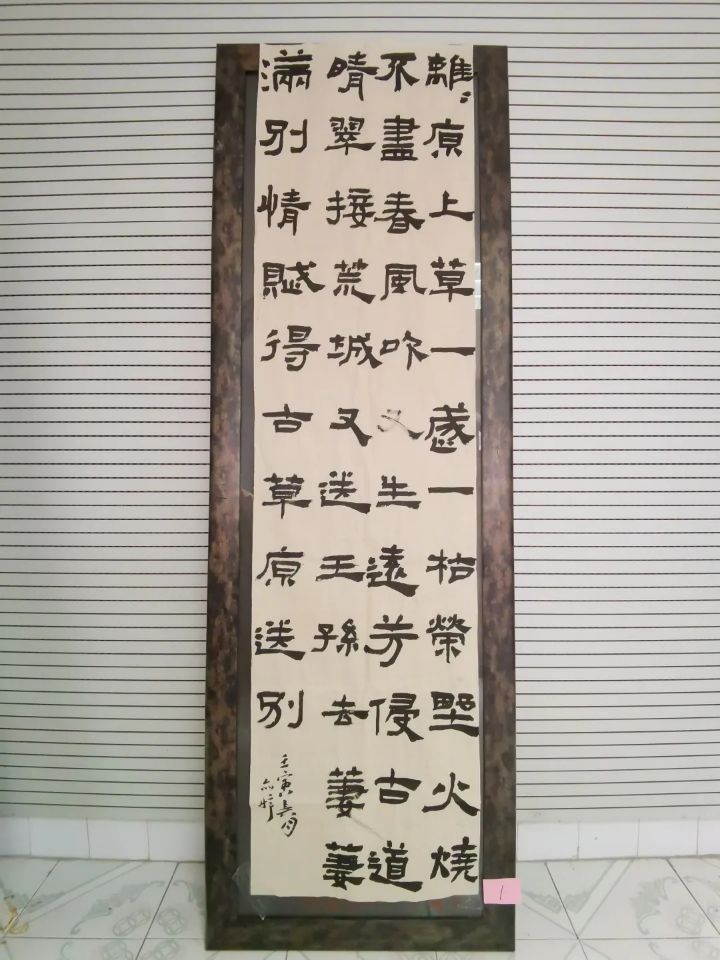 離〻原上草一歲一枯榮野火燒
不盡春風吹又生遠芳侵古道
晴翠接荒城又送王孫去萋萋
滿別情賦得古草原送別
壬寅月
1